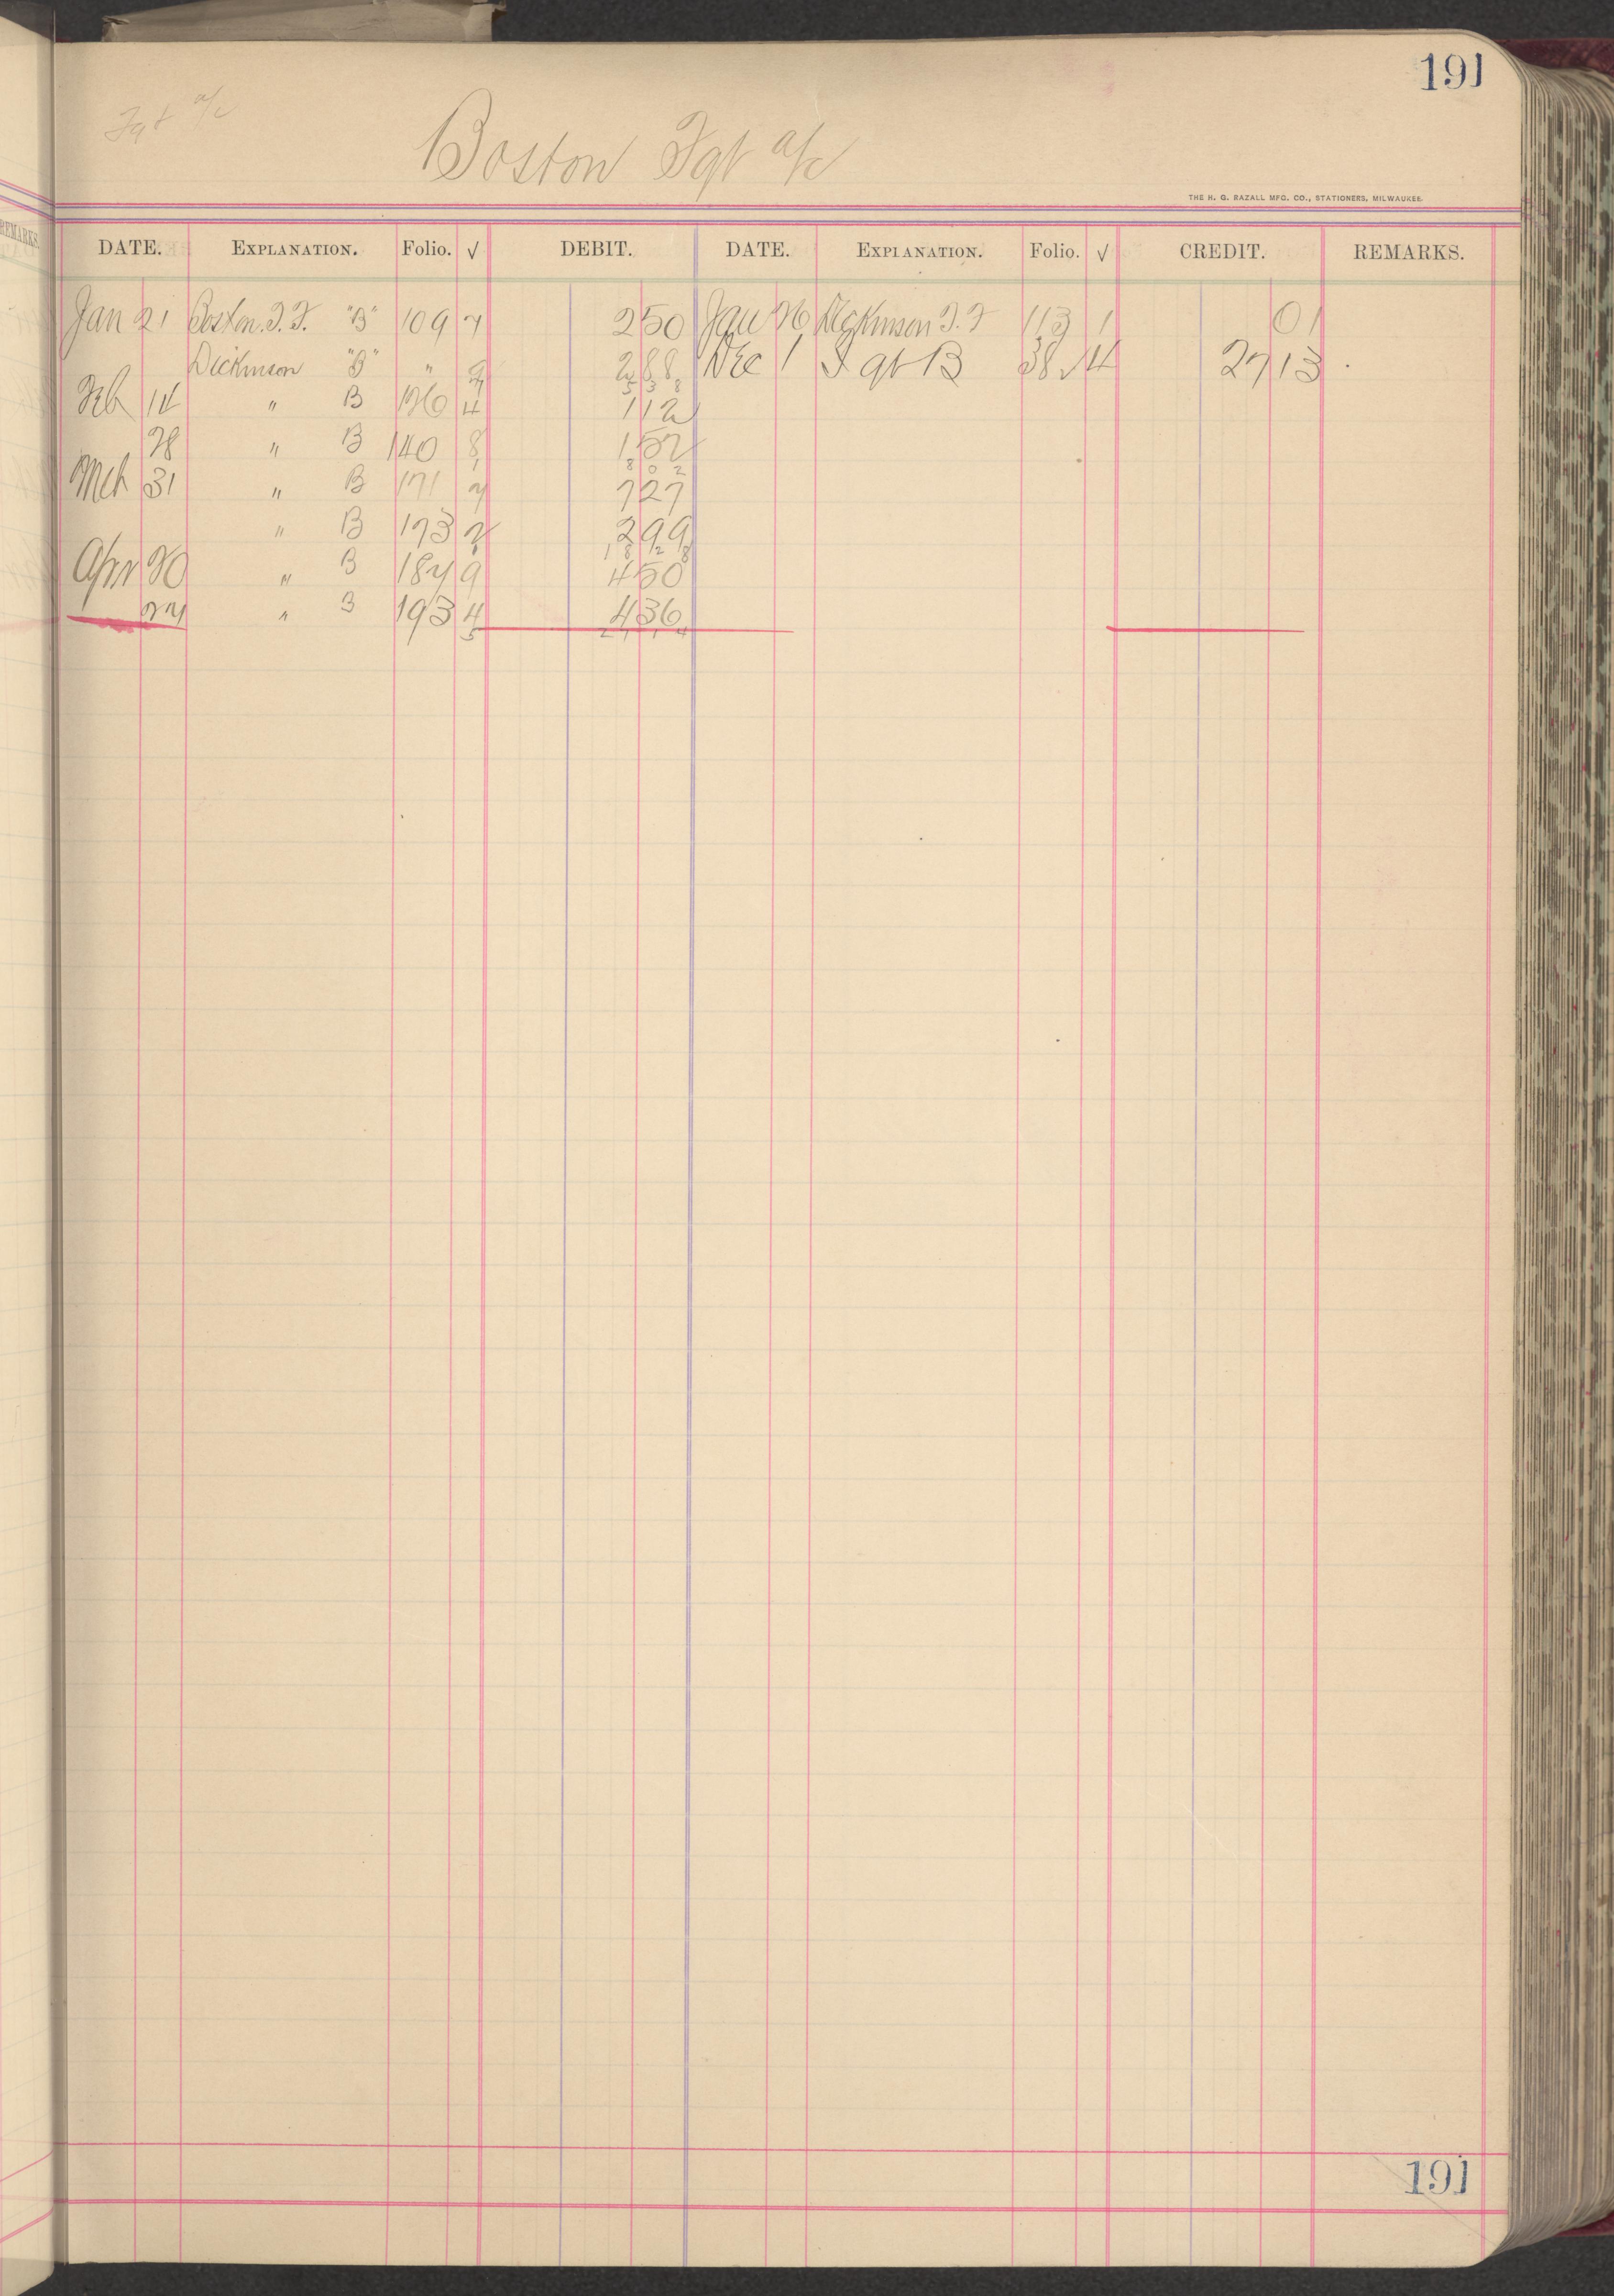 191
Fgt a/c
Boston Fgt a/c
THE H. G. RAZALL MFG. CO., STATIONERS, MILWAUKEE.
REMARKS.
DATE. EXPLANATION. Folio. √ DEBIT. DATE. EXPLANATION. Folio. √ CREDIT. REMARKS.
Jan 21 Boston. F. F. "B" 109 7 250 Jan 26 Dickinson F. F 113 1 01
Dickinson "B" " 9 288 Dec 1 Fgt B 38 √4 27 13
538
Feb 14 " B 126 4 112
28 " B 140 8 152
802
Mch 31 " B 171 7 727
" B 173 2 299
1828
Apr 20 " B 184 9 450
24 " B 193 4 436
5 2714
191